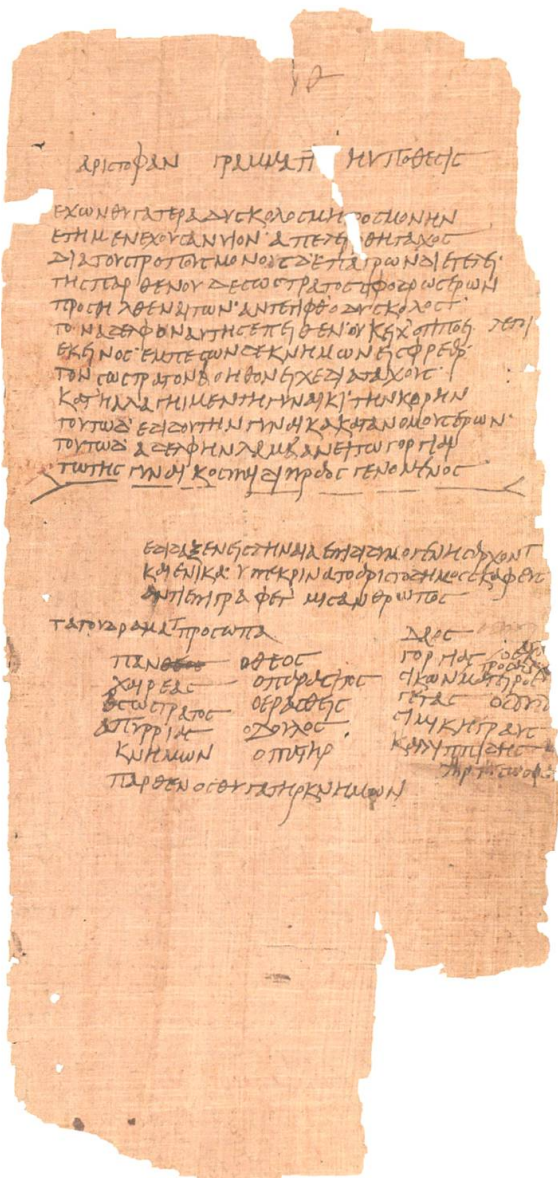 ΑΡΙϹΤΟΦΑΝ ΓΡΑΜΜΑΤΙ Η ΥΠΟΘΕϹΙϹ
ΕΧΩΝΘΥΓΑΤΕΡΑΔΥϹΚΟΛΟϹΜΗΤΡΟϹΜΟΝΗΝ
ΕΓΗΜΕΝΕΧΟΥϹΑΝΥΙΟΝ·ΑΠΕΛΕΙΦΘΗΤΑΧΟϹ
ΔΙΑΤΟΥϹΤΡΟΠΟΥϹΜΟΝΟϹΔΕΠΑΓΡΩΝΔΙΕΤΕΛΕΙ·
ΤΗϹΠΑΡΘΕΝΟΥΔΕϹΩϹΤΡΑΤΟϹϹΦΟΔΡΩϹΕΡΩΝ
ΠΡΟϹΗΛΘΕΝΑΙΤΩΝ·ΑΝΤΕΠΙΦΘΟΔΥϹΚΟΛΟϹ·
ΤΟΝΑΔΕΛΦΟΝΑΥΤΗϹΕΠΕΙΘΕΝ·ΟΥΚΕΙΧΟΤΙ
ΕΚΕΙΝΟϹ·ΕΜΠΕϹΩΝΔΕΚΝΗΜΩΝΕΙϹΦΡΕΑΡ·
ΤΟΝϹΩϹΤΡΑΤΟΝΒΟΗΘΟΝΕΙΧΕΔΙΑΤΑΧΟΥϹ·
ΚΑΤΗΛΛΑΓΗΜΕΝΤΗΓΥΝΑΙΚΙ·ΤΗΝΚΟΡΗΝ
ΤΟΥΤΩΔΕΔΙΔΟΥΤΗΝΓΥΝΑΙΚΑΚΑΤΑΝΟΜΟΥϹΕΡΩΝ·
ΤΟΥΤΩΔΑΔΕΛΦΗΝΛΑΜΒΑΝΕΙΤΩΓΟΡΓΙΑΙ
ΤΩΤΗϹΓΥΝΑΙΚΟϹΠΑΙΔΙΠΡΑΟϹΓΕΝΟΜΕΝΟϹ
ΕΔΙΔΑΞΕΝΕΙϹΛΗΝΑΙΑΕΠΙΔΙΔΥΜΟΓΕΝΗϹΑΡΧΟΝΤ
ΚΑΙΕΝΙΚΑ·ΥΠΕΚΡΙΝΑΤΟΑΡΙϹΤΟΔΗΜΟϹϹΚΑΦΕΥϹ
ΑΝΤΕΠΙΓΡΑΦΕΤ ΜΙϹΑΝΘΡΩΠΟϹ
ΤΑΤΟΥΔΡΑΜΑΤΠΡΟϹΩΠΑ
ΠΑΝ ΟΘΕΟϹ
ΧΑΙΡΕΑϹ ΟΠΑΡΑϹΙΤΟϹ
ϹΩϹΤΡΑΤΟϹ ΟΕΡΑϹΘΕΙϹ
ΠΥΡΡΙΑϹ ΟΔΟΥΛΟϹ
ΚΝΗΜΩΝ ΟΠΑΤΗΡ
ΠΑΡΘΕΝΟϹΘΥΓΑΤΗΡΚΝΗΜΩΝ
ΔΑΟϹ
ΓΟΡΓΙΑϹ
ϹΙΚΩΝΜΑΓΕΙΡΟϹ
ΓΕΤΑϹ ΟΔΟΥΛ
ϹΙΜΙΚΗΓΡΑΥϹ
ΚΑΛΛΙΠΠΙΔΗϹ